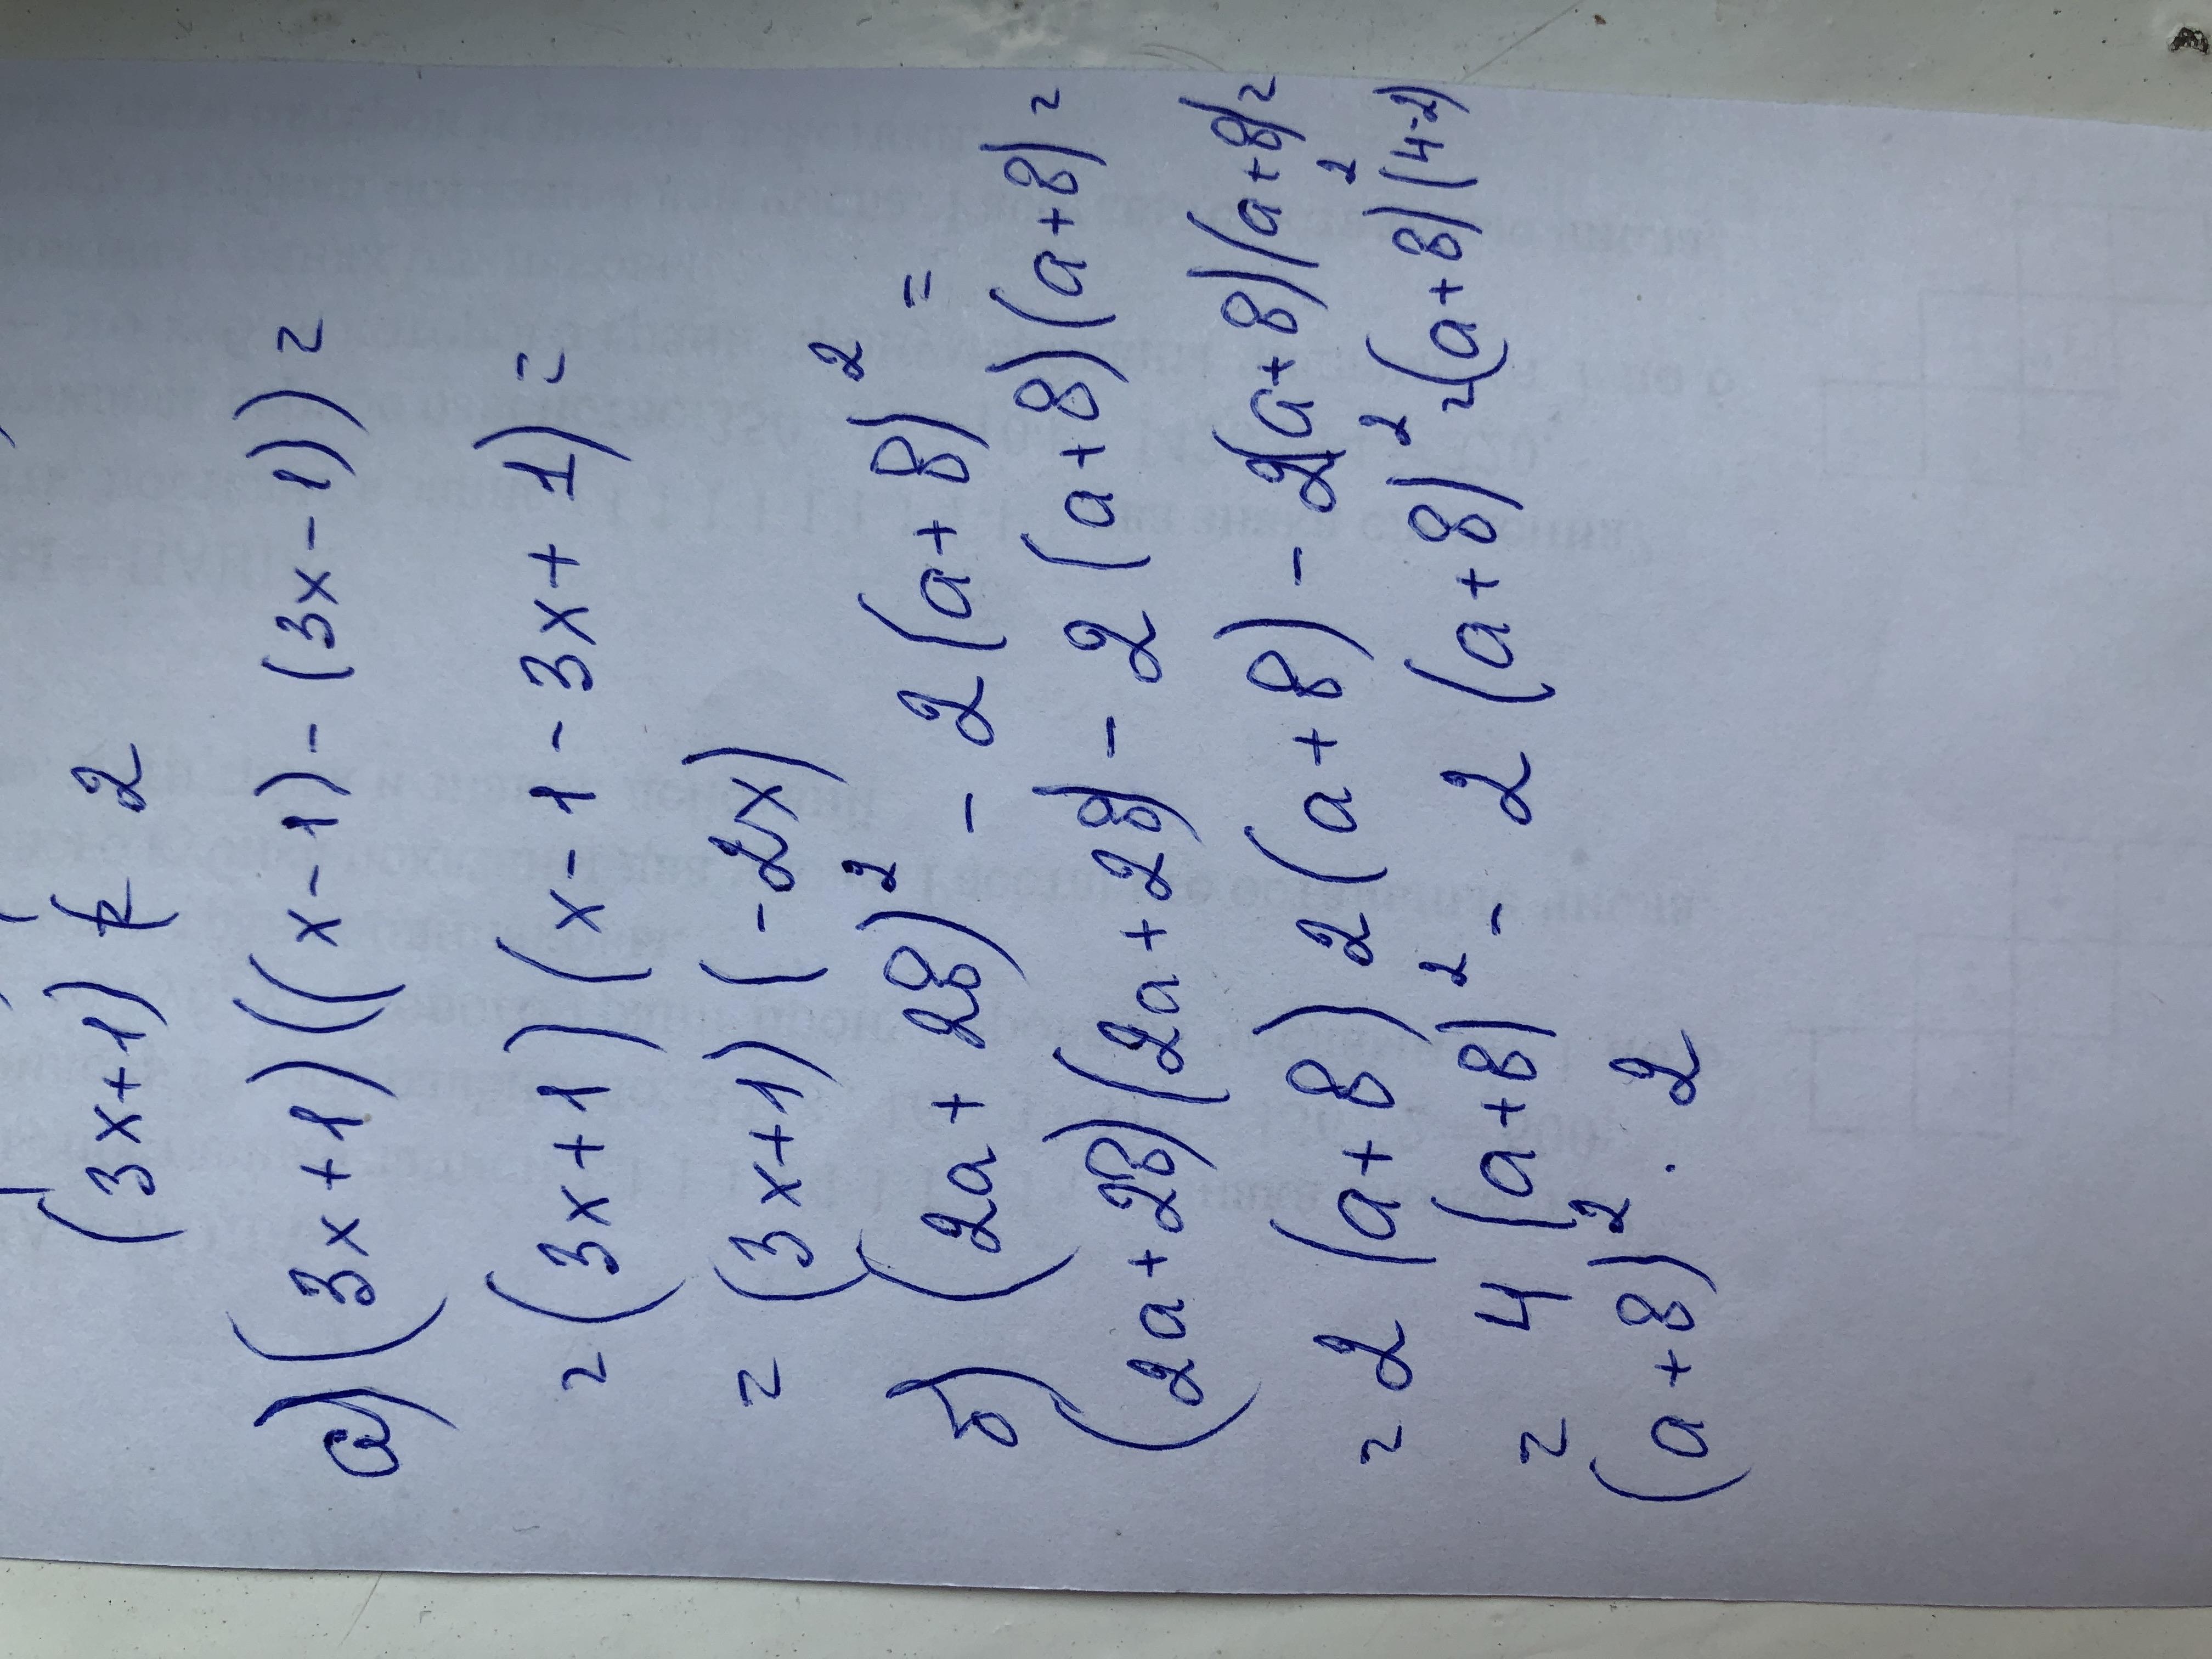 (3x+1) 2
а) (3x+1)((x-1)-(3x-1))=
=(3x+1)(x-1-3x+1)=
=(3x+1)(-2x)
б) (2a+2в)² - 2(a+в)² =
(2a+2в)(2a+2в)-2(a+в)(a+в)=
=2(a+в)2(a+в)-2(a+в)(a+в)=
=4(a+в)²-2(a+в)²=(a+в)²(4-2)
(a+в)²·2